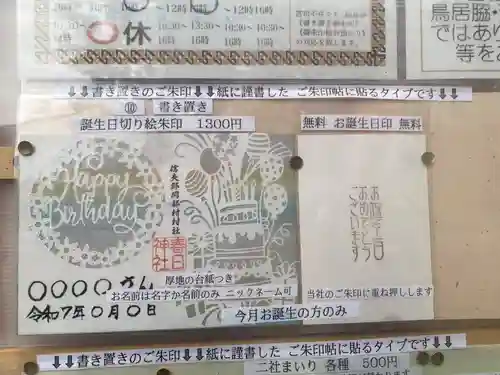 休
～12時
16時
10:30～
16時
10:30～
16時
～12時
16時
鳥居脇・
ではあり
等をお
⬇⬇書き置きのご朱印⬇⬇紙に謹書した ご朱印帖に貼るタイプです⬇⬇
⑩ 書き置き
誕生日切り絵朱印 1300円
Happy
Birthday
春日
神社
〇〇〇〇 さん
厚地の台紙つき
お名前は名字か名前のみ ニックネーム可
令和7年〇月〇日
今月お誕生の方のみ
無料 お誕生日印 無料
お誕生日
おめでとう
ございます
当社のご朱印に重ね押しします
⬇⬇書き置きのご朱印⬇⬇紙に謹書した ご朱印帖に貼るタイプです⬇⬇
二社まいり 各種 500円